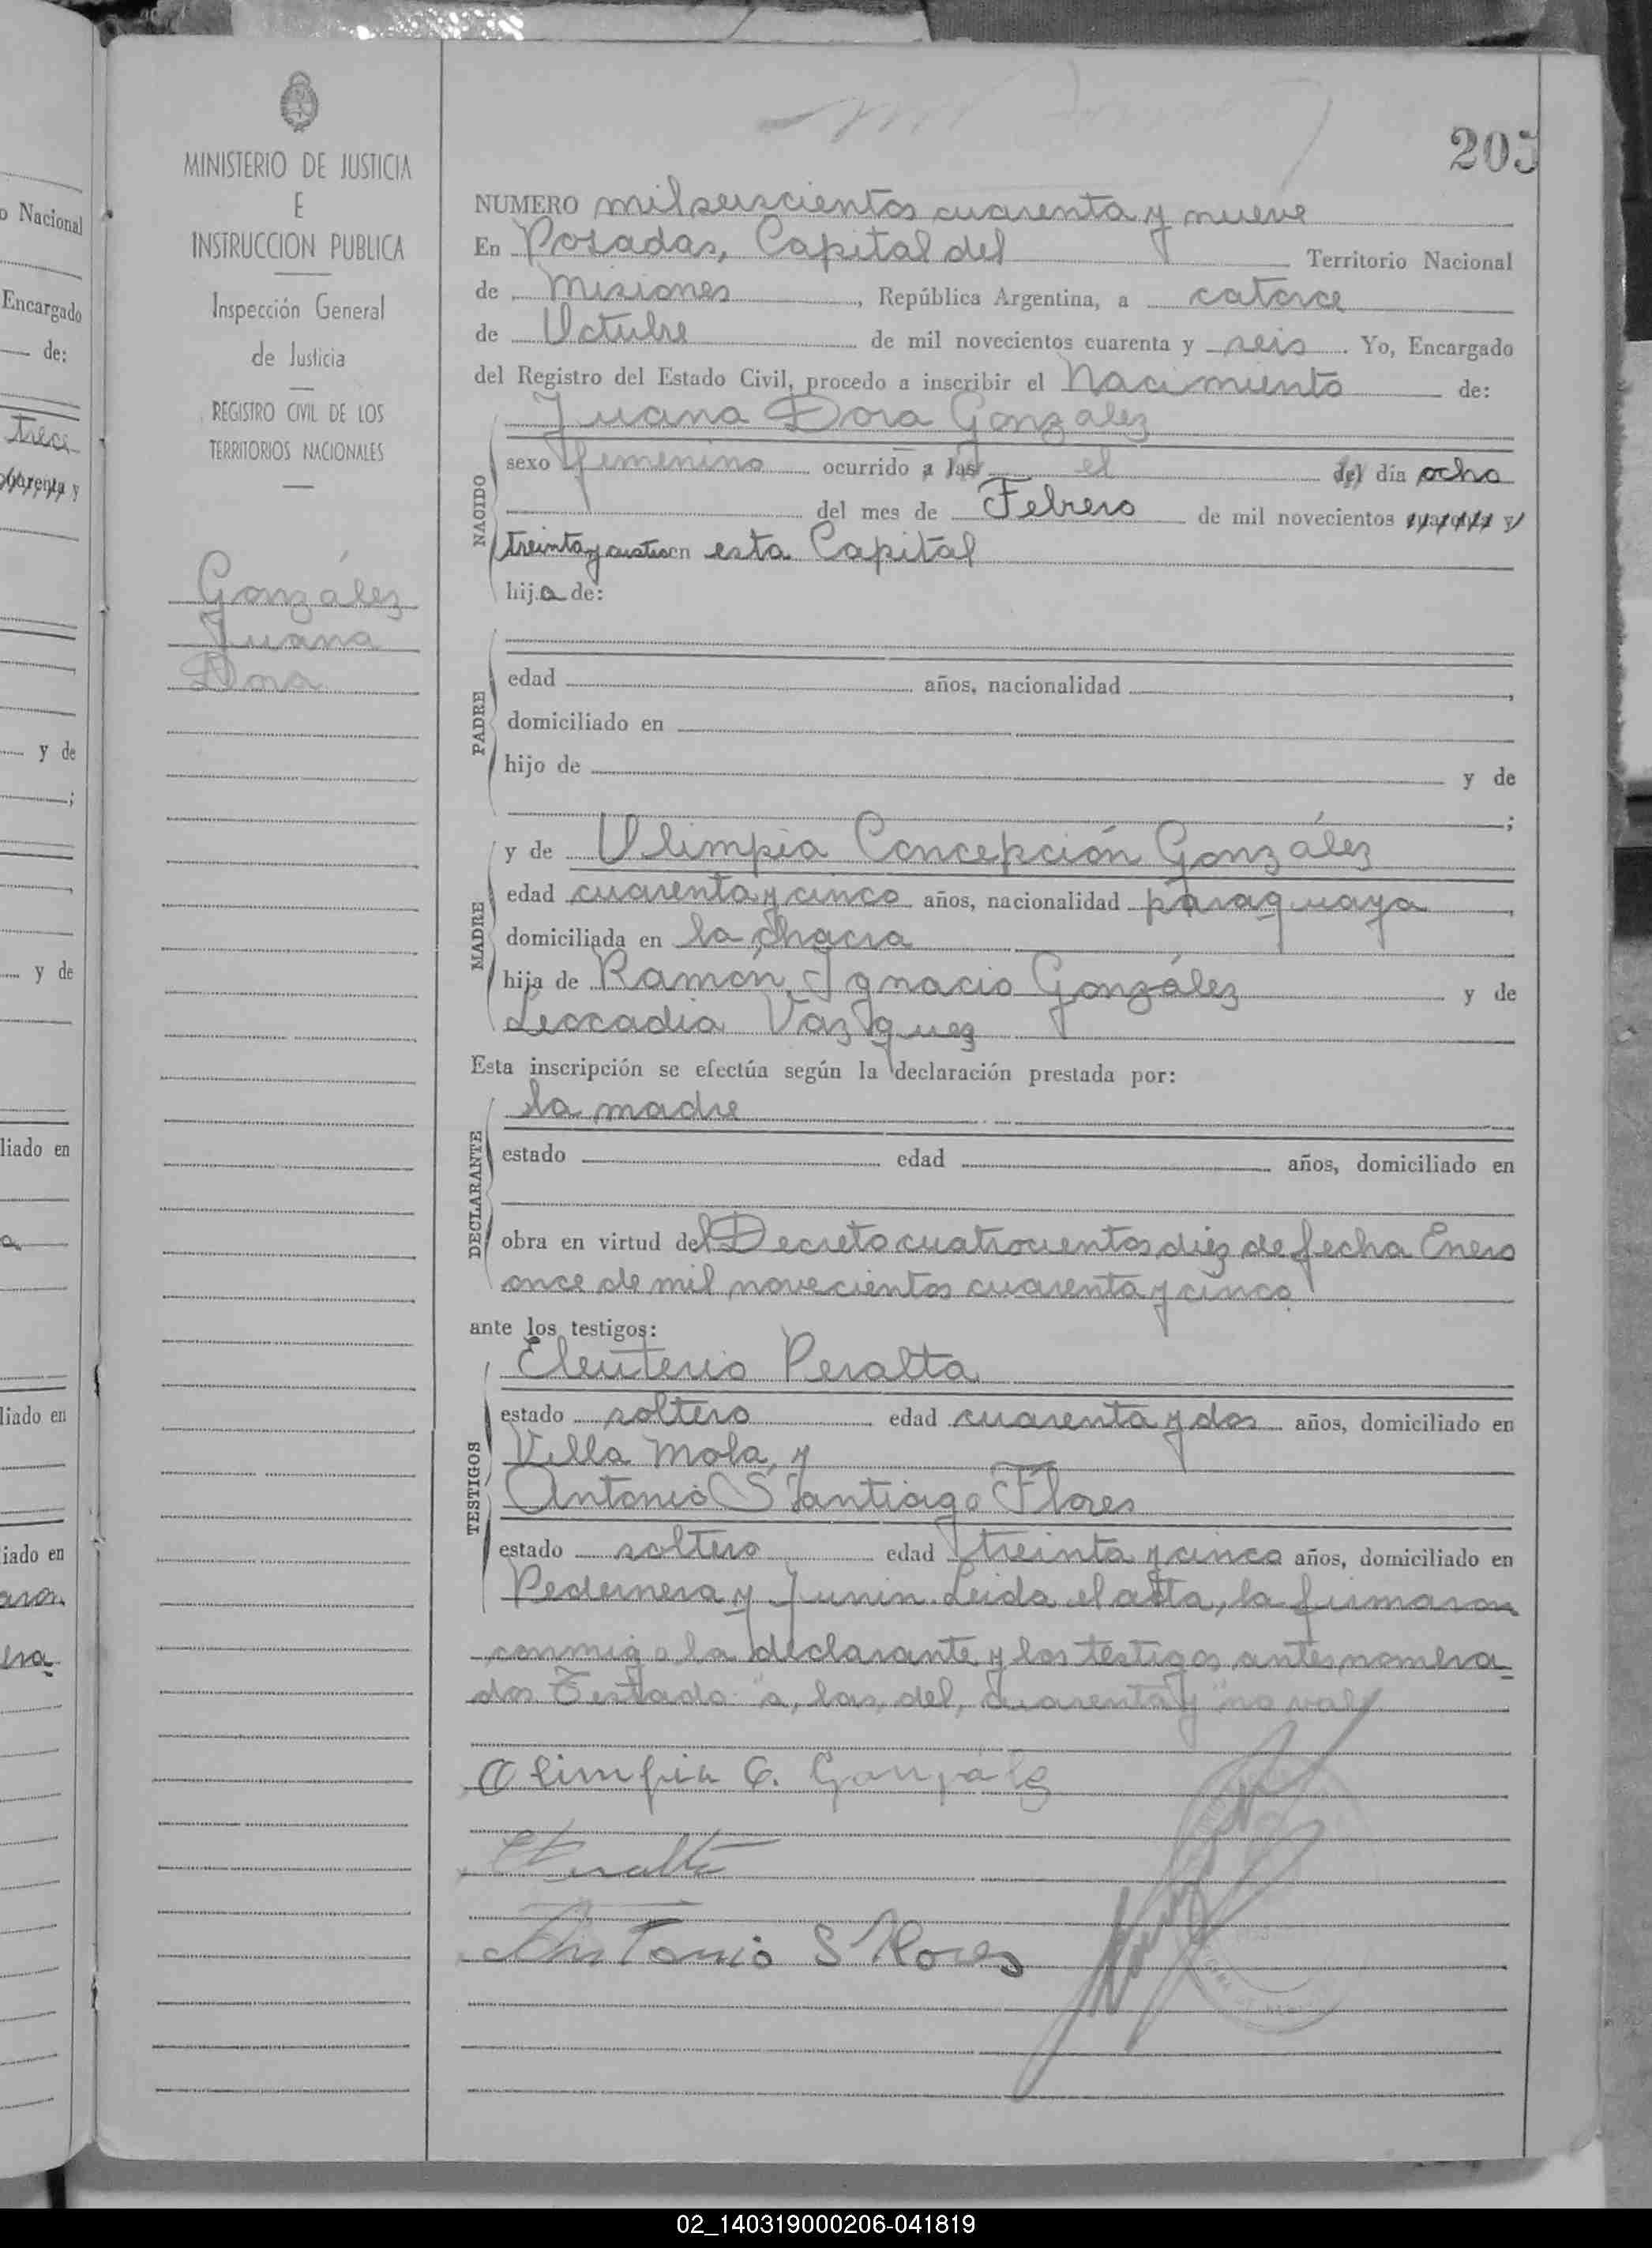 o Nacional
Encargado
de:
trece
y
y de
;
y de
liado en
a
liado en
iado en
aron
era
MINISTERIO DE JUSTICIA
E
INSTRUCCION PUBLICA
Inspección General
de Justicia
REGISTRO CIVIL DE LOS
TERRITORIOS NACIONALES
González
Juana
Dora
205
NUMERO mil seiscientos cuarenta y nueve
En Posadas, Capital del Territorio Nacional
de Misiones, República Argentina, a catorce
de Octubre de mil novecientos cuarenta y seis. Yo, Encargado
del Registro del Estado Civil, procedo a inscribir el Nacimiento de:
Juana Dora González
NACIDO
sexo femenino ocurrido a las el del día ocho
del mes de Febrero de mil novecientos cuarenta y
treinta y en esta Capital
hija de:
PADRE
edad años, nacionalidad ,
domiciliado en
hijo de y de
;
MADRE
y de Olimpia Concepción González
edad cuarenta y cinco años, nacionalidad paraguaya,
domiciliada en la chacra
hija de Ramón Ignacio González y de
Leocadia Vazquez
Esta inscripción se efectúa según la declaración prestada por:
DECLARANTE
la madre
estado edad años, domiciliado en
obra en virtud del Decreto cuatrocientos diez de fecha Enero
once de mil novecientos cuarenta y cinco
ante los testigos:
TESTIGOS
Eleuterio Peralta
estado soltero edad cuarenta y dos años, domiciliado en
Villa Mola, y
Antonio Santiago Flores
estado soltero edad treinta y cinco años, domiciliado en
Pedernera y Junin. Leida el acta, la firmaron
conmigo la declarante y los testigos antes nombra-
dos Testado: "a, las, del, cuarenta y" no vale
Olimpia C. Gonzalez
E Peralta
Antonio S Flores
02_140319000206-041819